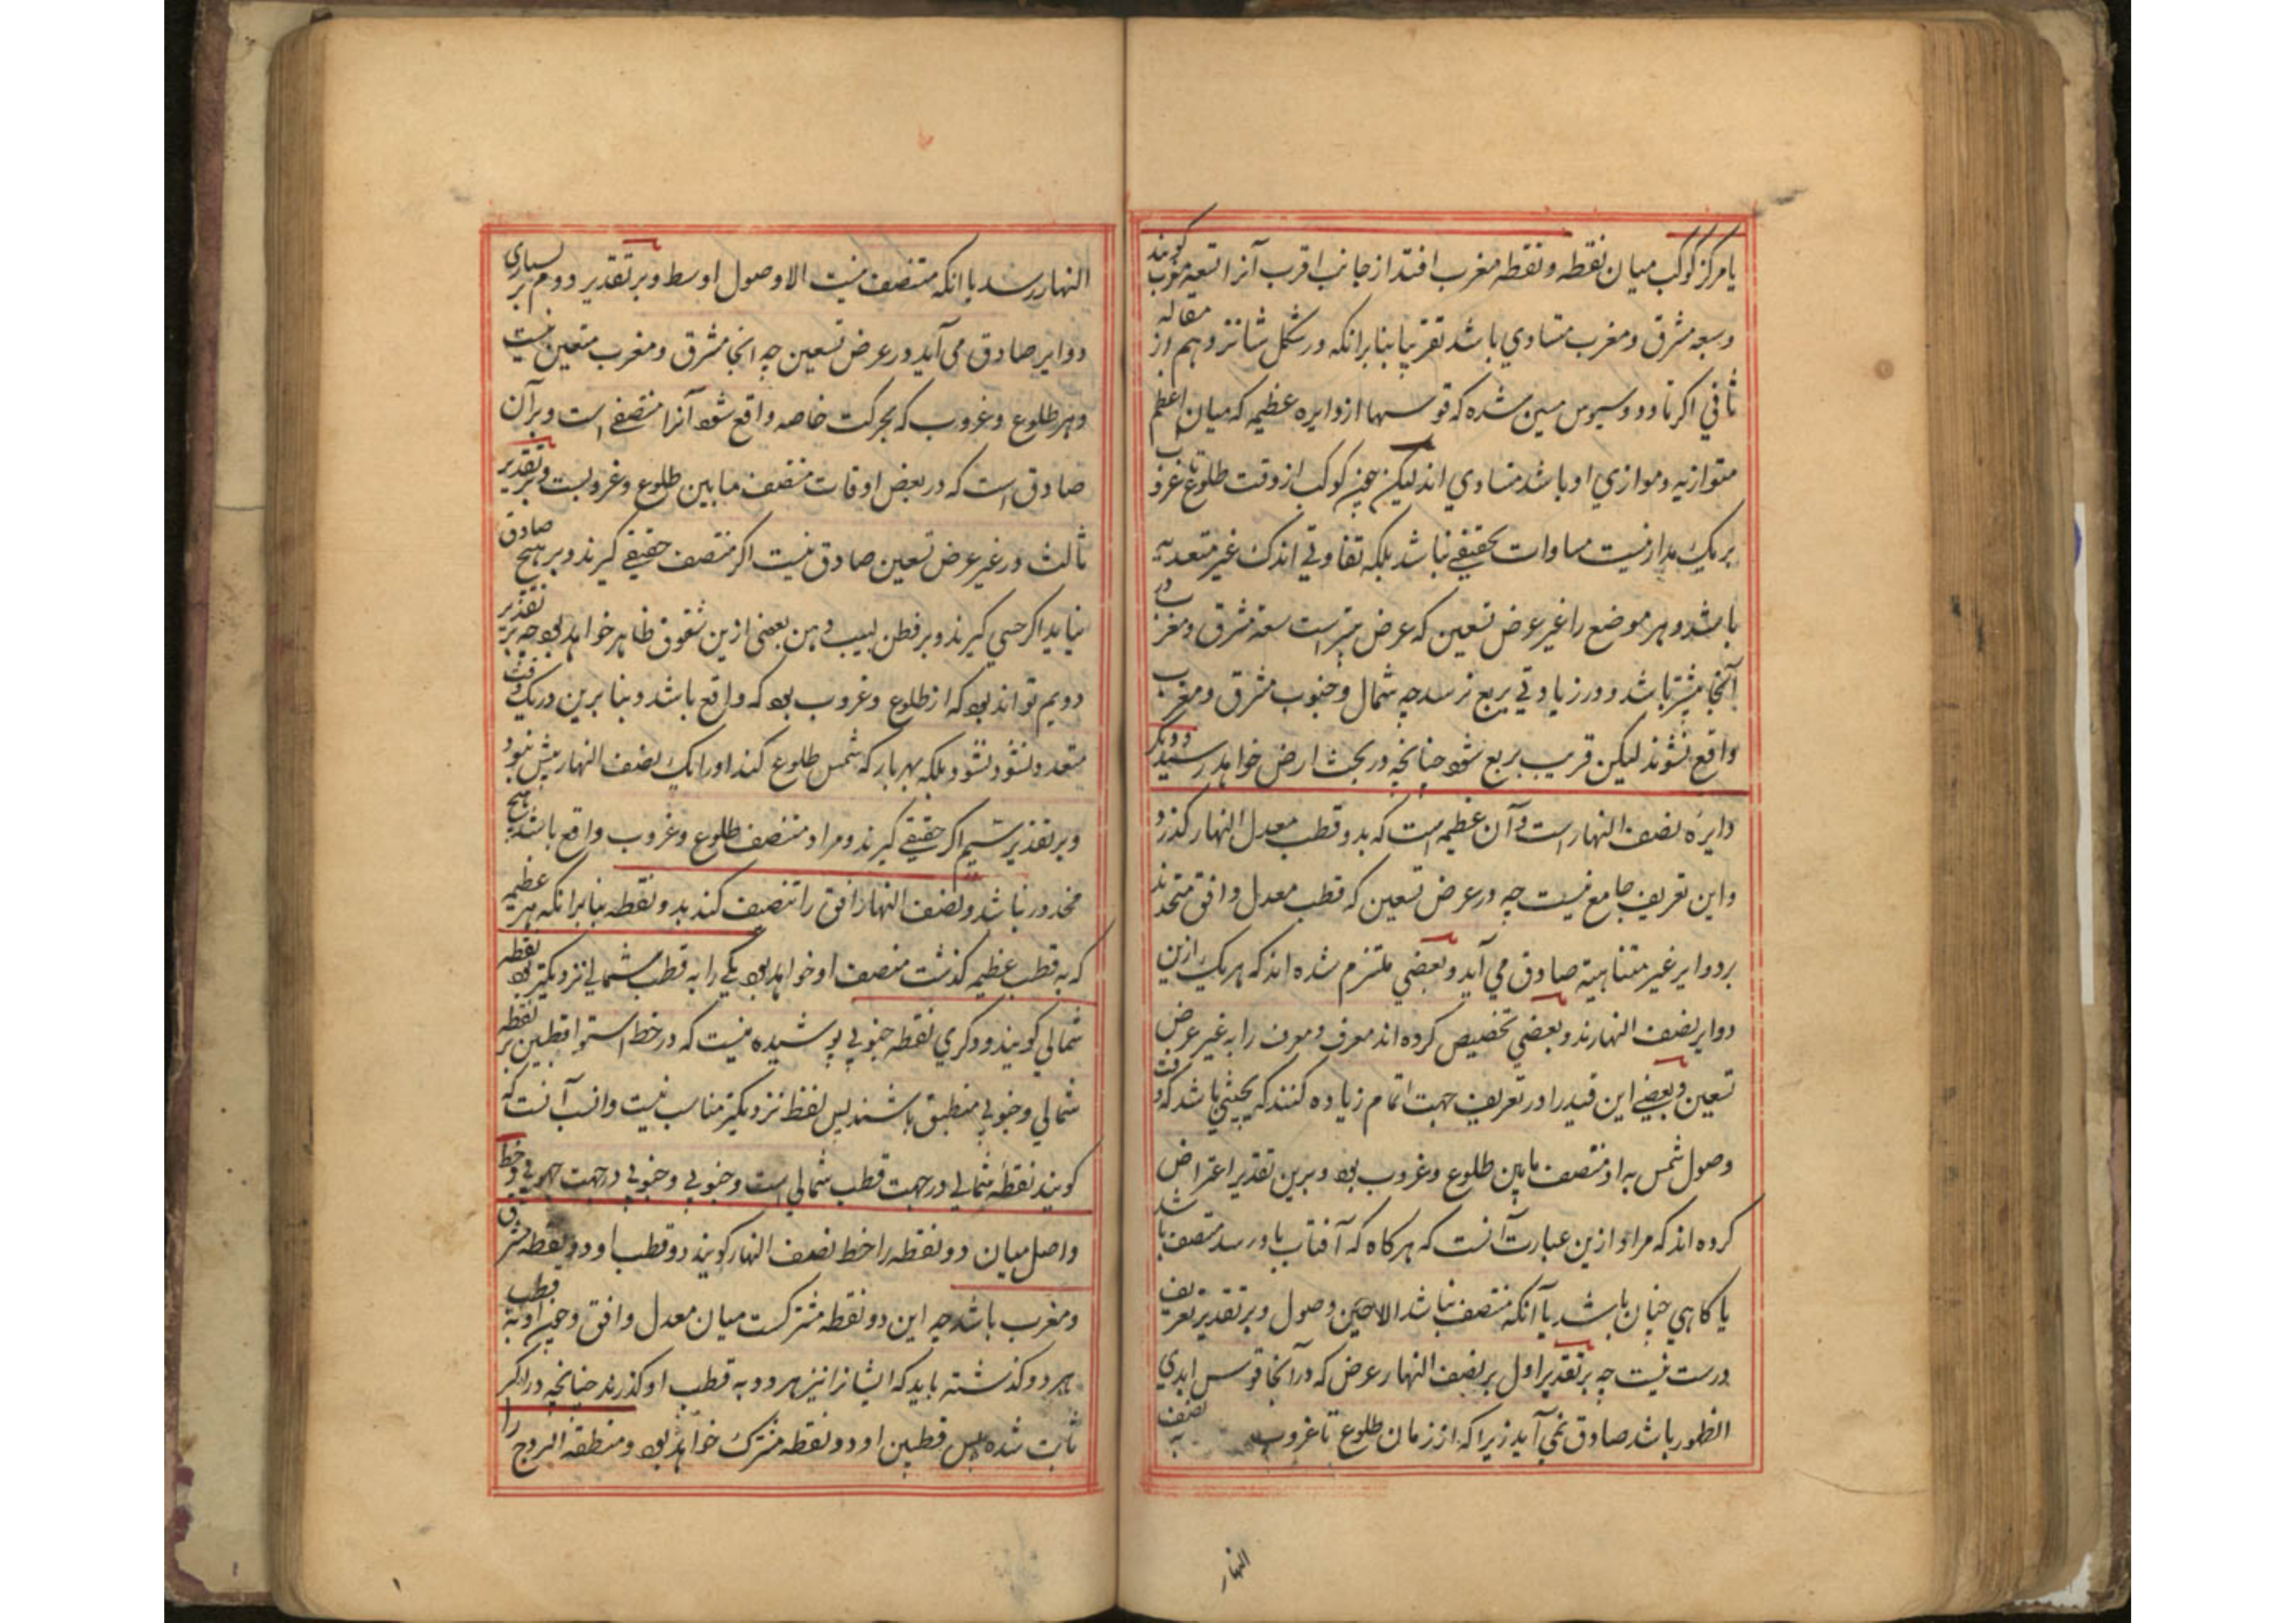 یا مرکز کوکب میان نقطه و نقطه مغرب افتد از جانب اقرب آنرا سعه مغرب کویند
و سعه مشرق و مغرب متساوی باشد تقریبا بنا برانکه در شکل شانزدهم از مقاله
ثانی اکر ثاودوسیوس مبین شده که قوسها از دوایره عظیمه که میان اعظم
متوازیه و موازی او باشد متساوی اند لیکن چون کوکب از وقت طلوع تا غروب
بر یک مدار نیست مساوات تحقیقی نباشد بلکه تفاوتی اندک غیر متعدبه
باشد و هر موضع را غیر عرض تسعین که عرض بیشتر است سعة مشرق و مغرب در
آنجا بیشتر باشد و در زیادتی بربع نرسد چه شمال و جنوب مشرق و مغرب
واقع نشوند لیکن قریب بربع شود چنانچه در بحث ارض خواهد رسید و دیکر
دایره نصف النهار است و آن عظیمه است که بدو قطب معدل النهار کذرد
و این تعریف جامع نیست چه در عرض تسعین که قطب معدل و افق متحدند
بر دوایر غیر متناهیة صادق می آید و بعضی ملتزم شده اند که هر یک ازین
دوایر نصف النهارند و بعضی تخصیص کرده اند معرف و معرف را به غیر عرض
تسعین و بعضی این قید را در تعریف جهت اتمام زیاده کنند که بحیثی باشد که وقت
وصول شمس به او منتصف مابین طلوع و غروب بود و برین تقدیر اعتراض
کرده اند که مراد ازین عبارت آنست که هر کاه که آفتاب باو رسد منتصف باشد
یا کاهی چنان باشد یا آنکه منتصف نباشد الا حین وصول و بر تقدیر تعریف
درست نیست چه بر تقدیر اول بر نصف النهار عرض که در آنجا قوس ابدی
الظهور باشد صادق نمی آید زیرا که از زمان طلوع تا غروب به نصف
النهار
النهار رسد با انکه منتصف نیست الا وصول اوسط و بر تقدیر دوم بر بسیاری
دوایر صادق می آید در عرض تسعین چه انجا مشرق و مغرب متعین نیست
و هر طلوع و غروب که بحرکت خاصه واقع شود آنرا منتصفی است و بر آن
صادق است که در بعض اوقات منتصف مابین طلوع و غروبست و بر تقدیر
ثالث در غیر عرض تسعین صادق نیست اکر منتصف حقیقی کیرند و بر هیچ صادق
نیاید اکر حسی کیرند و بر فطن لبیب وهن بعضی ازین شقوق ظاهر خواهد بود چه بر تقدیر
دویم تواند بود که از طلوع و غروب بود که واقع باشد و بنا برین در یک وقت
متعدد نشود بلکه بهر بار که شمس طلوع کند او را یک نصف النهار بیش نبود
و بر تقدیر سیم اکر حقیقی کیرند و مراد منتصف طلوع و غروب واقع باشد هیچ
محذور نباشد و نصف النهار افق را تنصیف کند بدو نقطه بنا برانکه هر عظیمه
که به قطب عظیمه کذشت منصف او خواهد بود یکی را به قطب شمالی نزدیکتر بود نقطه
شمالی کویند و دکری نقطه جنوبی پوشیده نیست که در خط استوا قطبین بر نقطه
شمالی و جنوبی منطبق باشند پس لفظ نزدیکتر مناسب نیست و انسب آنست که
کویند نقطه شمالی در جهت قطب شمالی است و جنوبی و جنوبی در جهت جنوبی و خط
واصل میان دو نقطه را خط نصف النهار کویند و دو قطب او دو نقطه مشرق
و مغرب باشد چه این دو نقطه مشترکست میان معدل و افق و چون او به قطب
هر دو کذشته باید که ایشانرا نیز هر دو به قطب او کذرند چنانچه در اکر
ثابت شده پس قطبین او دو نقطه مشترک خواهد بود و منطقة البروج را